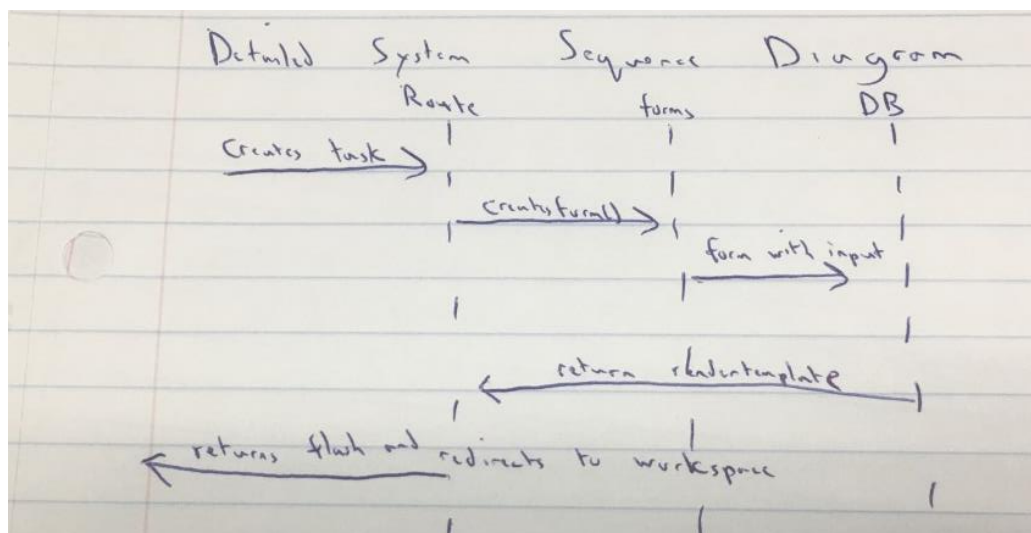 Detailed System Sequence Diagram
Route forms DB
Creates task
creates form()
form with input
return rendertemplate
returns flash and redirects to workspace